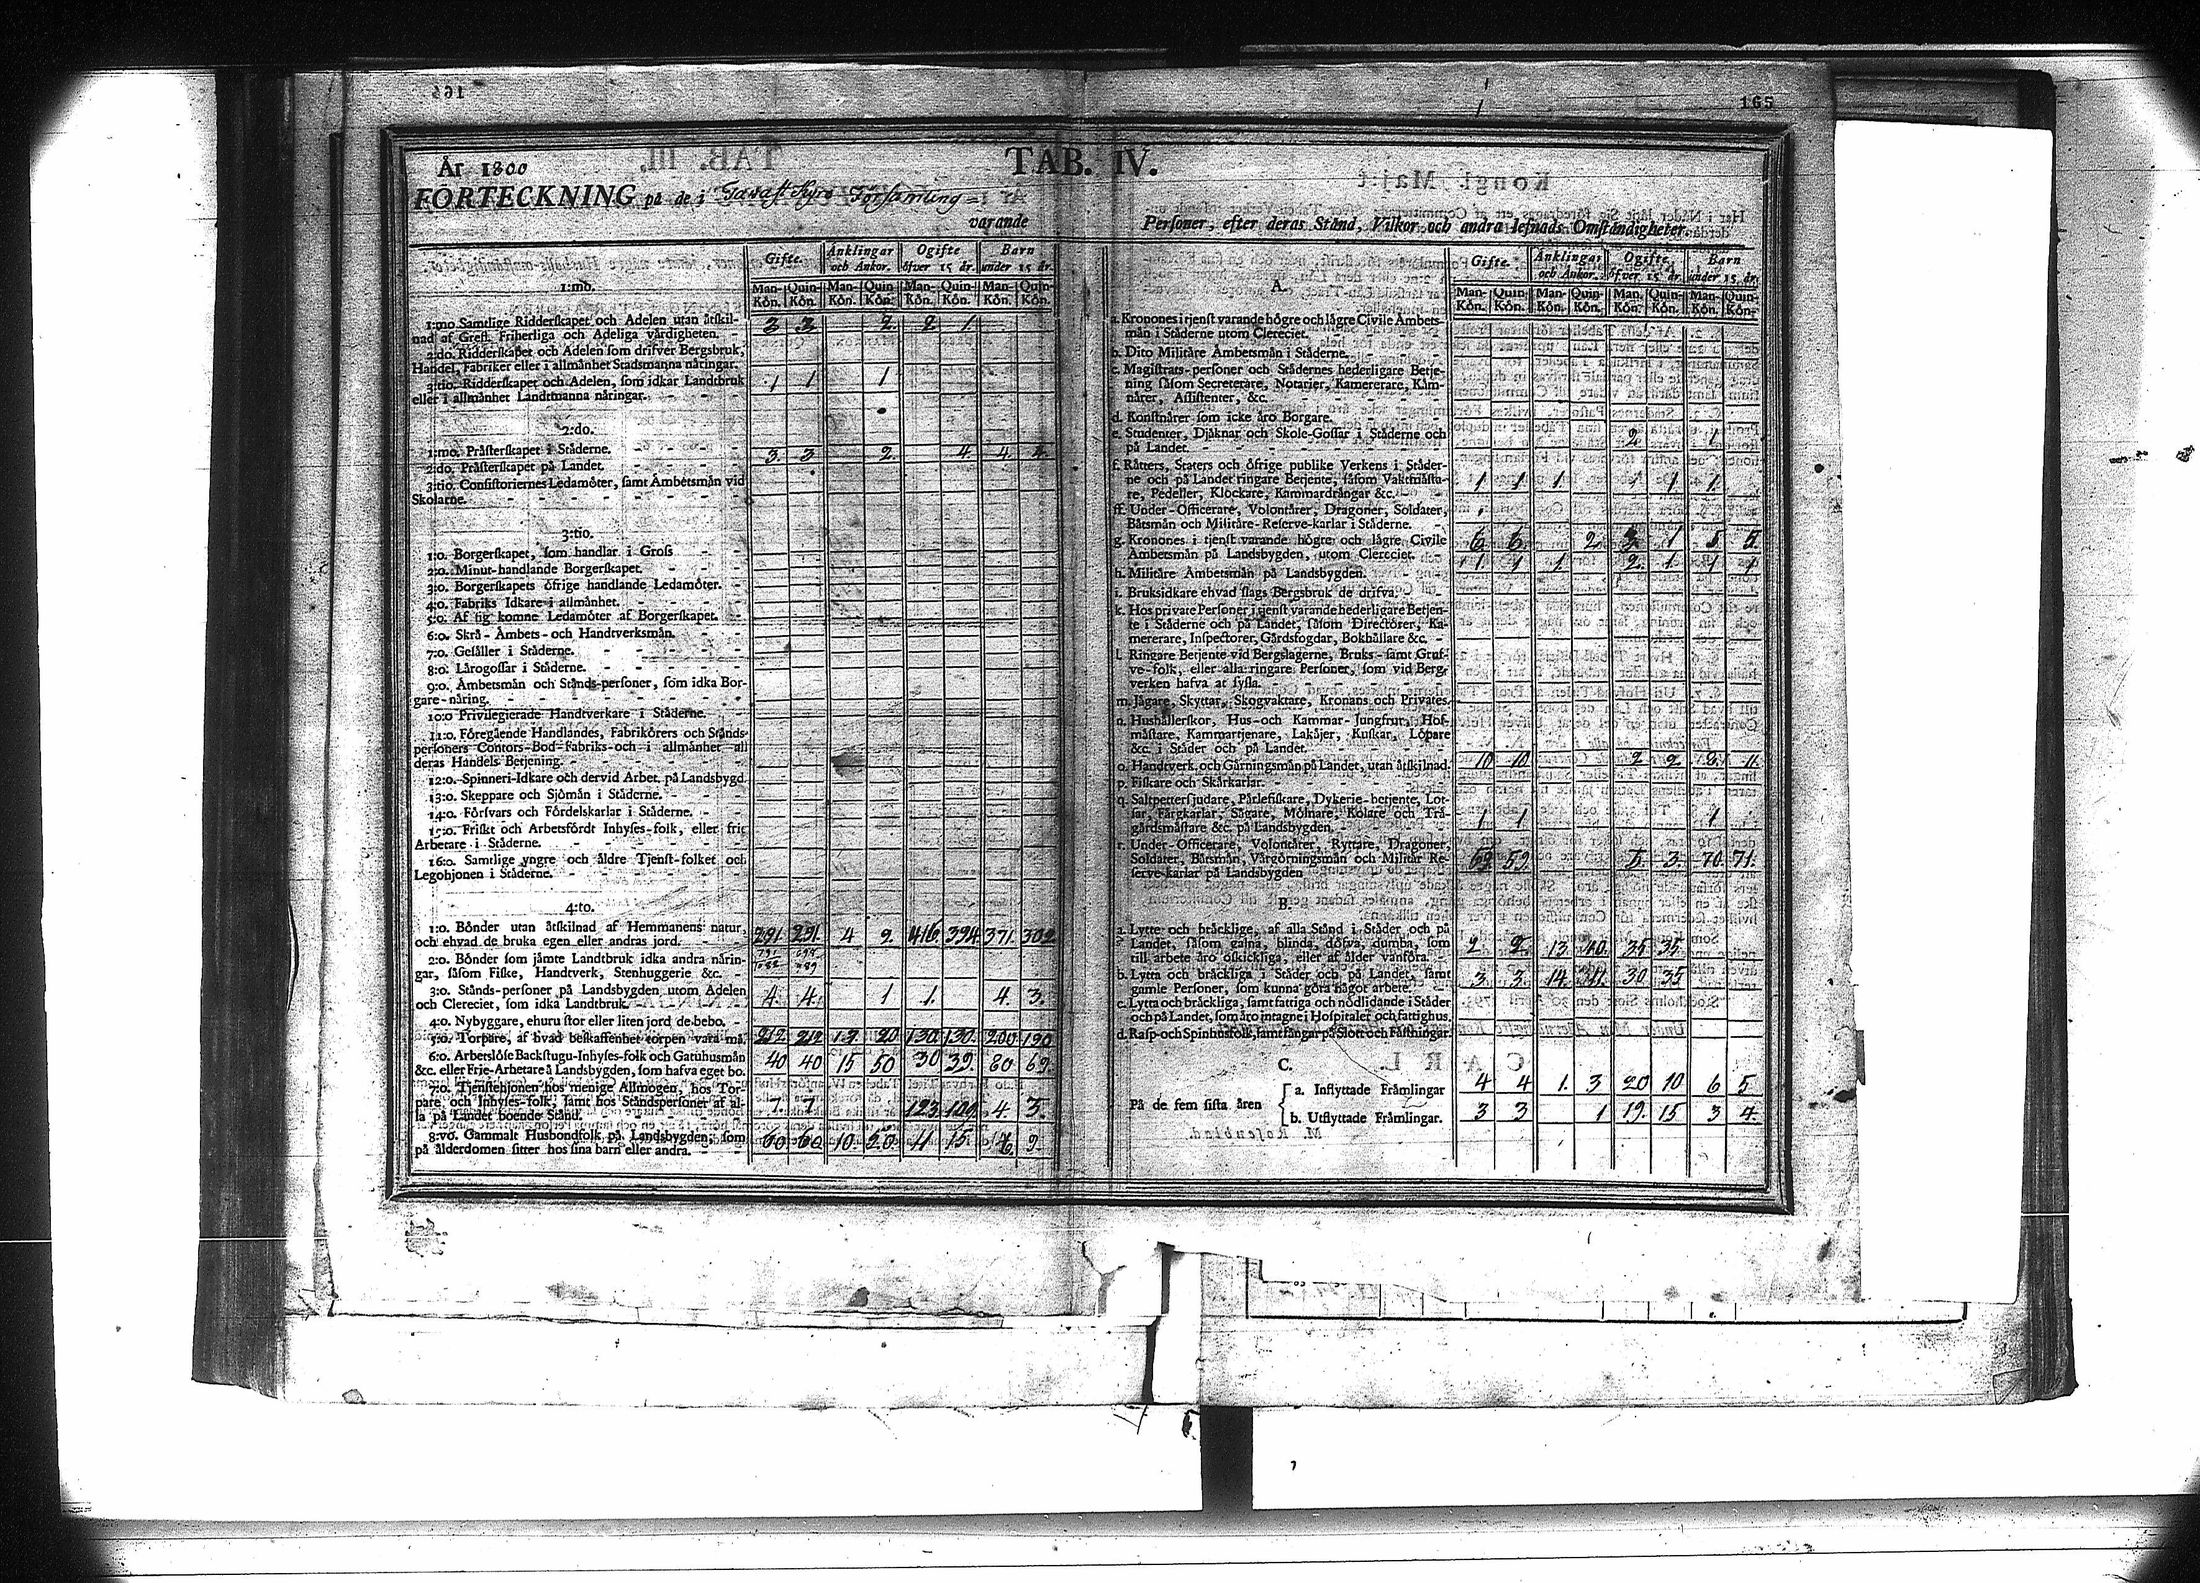 165
År 1800
TAB. IV.
FÖRTECKNING på de i Tavast Kyro Församling
varande Personer, efter deras Stånd, Vilkor och andra lefnads Omståndigheter.
Gifte. Ånklingar och Ånkor. Ogifte öfver 15 år. Barn under 15 år.
Man-Kön. Quin-Kön. Man-Kön. Quin-Kön. Man-Kön. Quin-Kön. Man-Kön. Quin-Kön.
1:mo.
1:mo Samtlige Ridderskapet och Adelen utan åtskil-
nad af Grefl. Friherliga och Adeliga vårdigheten. 3 3 2 2 1
2:do. Ridderskapet och Adelen som drifver Bergsbruk,
Handel, Fabriker eller i allmånhet Stadsmanna nåringar.
3:tio. Ridderskapet och Adelen, som idkar Landtbruk 1 1 1
eller i allmånhet Landtmanna nåringar.
2:do.
1:mo. Pråsterskapet i Ståderne.
2:do. Pråsterskapet på Landet. 3. 3 2. 4. 4. 4.
3:tio. Consistoriernes Ledamöter, samt Ambetsmån vid
Skolarne.
3:tio.
1:o. Borgerskapet, som handlar i Gross
2:o. Minut-handlande Borgerskapet.
3:o. Borgerskapets öfrige handlande Ledamöter.
4:o. Fabriks Idkare i allmånhet.
5:o. Af sig komne Ledamöter af Borgerskapet.
6:o. Skrå-Åmbets-och Handtverksmån.
7:o. Gesåller i Ståderne.
8:o. Lårogossar i Ståderne.
9:o. Åmbetsmån och Stånds-personer, som idka Bor-
gare-nåring.
10:o Privilegierade Handtverkare i Ståderne.
11:o. Föregående Handlandes, Fabrikörers och Stånds-
personers Contors-Bod-Fabriks-och i allmånhet all
deras Handels Betjening.
12:o. Spinneri-Idkare och dervid Arbet. på Landsbygd.
13:o. Skeppare och Sjömån i Ståderne.
14:o. Försvars och Fördelskarlar i Ståderne.
15:o. Friskt och Arbetsfördt Inhyses-folk, eller frie
Arbetare i Ståderne.
16:o. Samtlige yngre och åldre Tjenst-folket och
Legohjonen i Ståderne.
4:to.
1:o. Bönder utan åtskilnad af Hemmanens natur,
och ehvad de bruka egen eller andras jord. 291. 291. 4 9. 416. 394. 371. 302.
2:o. Bönder som jåmte Landtbruk idka andra nårin-
gar, såsom Fiske, Handtverk, Stenhuggerie &c.
3:o. Stånds-personer på Landsbygden utom Adelen
och Clereciet, som idka Landtbruk. 4. 4. 1 1. 4. 3.
4:o. Nybyggare, ehuru stor eller liten jord de bebo.
5:o. Torpare, af hvad beskaffenhet torpen vara må. 212. 212 12. 20 130. 130. 200. 190
6:o. Arbetslöse Backstugu-Inhyses-folk och Gatuhusmån
&c. eller Frie-Arbetare å Landsbygden, som hafva eget bo. 40 40 15 50 30 39. 80 69.
7:o. Tjenstehjonen hos menige Allmogen, hos Tor-
pare, och Inhyses-folk, samt hos Ståndspersoner af al-
la på Landet boende Stånd. 7. 7 123. 109. 4. 3.
8:vo. Gammalt Husbondfolk på Landsbygden, som
på ålderdomen sitter hos sina barn eller andra. 60 60 10. 20 11 15. 6. 9.
Gifte. Ånklingar och Ånkor. Ogifte öfver 15 år. Barn under 15 år.
Man-Kön. Quin-Kön. Man-Kön. Quin-Kön. Man-Kön. Quin-Kön. Man-Kön. Quin-Kön.
A.
a. Kronones i tjenst varande högre och lågre Civile Ambets-
mån i Ståderne utom Clereciet.
b. Dito Militåre Åmbetsmån i Ståderne.
c. Magistrats-personer och Stådernes hederligare Betje-
ning såsom Secreterare, Notarier, Kamererare, Kåm-
nårer, Assistenter, &c.
d. Konstnårer som icke åro Borgare.
e. Studenter, Djåknar och Skole-Gossar i Ståderne och
på Landet. 2 1
f. Råtters, Staters och öfrige publike Verkens i Ståder-
ne och på Landet ringare Betjente, såsom Vaktmåsta-
re, Pedeller, Klockare, Kammardrångar &c. 1 1 1 1 1 1
ff. Under-Officerare, Volontårer, Dragoner, Soldater,
Båtsmån och Militåre-Reserve-karlar i Ståderne.
g. Kronones i tjenst varande högre och lågre Civile
Ambetsmån på Landsbygden, utom Clereciet. 6 6 2 3 1 5 5.
h. Militåre Ambetsmån på Landsbygden. 1 1 1. 2. 1. 1 1
i. Bruksidkare ehvad slags Bergsbruk de drifva.
k. Hos private Personer i tjenst varande hederligare Betjen-
te i Ståderne och på Landet, såsom Directörer, Ka-
mererare, Inspectorer, Gårdsfogdar, Bokhållare &c.
l. Ringare Betjente vid Bergslagerne, Bruks-samt Gruf-
ve-folk, eller alla ringare Personer, som vid Berg-
verken hafva at sysla.
m. Jågare, Skyttar, Skogvaktare, Kronans och Privates.
n. Hushållerskor, Hus-och Kammar-Jungfrur, Hof-
måstare, Kammartjenare, Lakåjer, Kuskar, Löpare
&c. i Ståder och på Landet.
o. Handtverk. och Gårningsmån på Landet, utan åtskilnad. 10 10 2 2 8. 11.
p. Fiskare och Skårkarlar.
q. Saltpettersjudare, Pårlefiskare, Dykerie-betjente, Lot-
sar, Fårgkarlar, Sågare, Mölnare, Kolare och Trå-
gårdsmåstare &c. på Landsbygden. 1 1 1
r. Under-Officerare, Volontårer, Ryttare, Dragoner,
Soldater, Båtsmån, Vårgörningsmån och Militår Re-
serve-karlar på Landsbygden 59. 59. 5. 3. 70. 71.
B.
a. Lytte och bråcklige, af alla Stånd i Ståder och på
Landet, såsom galna, blinda, döfva, dumba, som
till arbete åro oskickliga, eller af ålder vanföra. 2 2. 13. 10. 35 35
b. Lytta och bråckliga i Ståder och på Landet, samt
gamle Personer, som kunna göra något arbete. 3. 3. 14. 11. 30 35
c. Lytta och bråckliga, samt fattiga och nödlidande i Ståder
och på Landet, som åro intagne i Hospitaler och fattighus.
d. Rasp-och Spinhusfolk, samt fångar på Slott och Fåstningar.
C.
På de fem sista åren
a. Inflyttade Fråmlingar 4 4 1. 3 20 10 6 5
b. Utflyttade Fråmlingar. 3 3 1 19. 15 3 4.